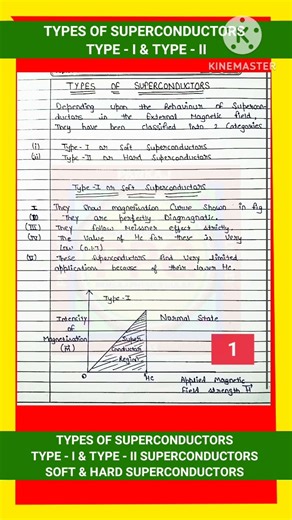 TYPES OF SUPERCONDUCTORS
TYPE - I & TYPE - II
KINEMASTER
TYPES OF SUPERCONDUCTORS
Depending upon the Behaviour of Supercon-
ductors in the External Magnetic field,
They have been classified into 2 Categories
(i) Type-I or Soft Superconductors
(ii) Type-II or Hard Superconductors
Type-I or Soft Superconductors
I. They Show magnetisation Curve Shown in fig
(II) They are perfectly Diamagnetic.
(III) They follow Meissner effect strictly.
(IV) The Value of Hc for these is Very
Low (0.1T)
(V) These Superconductors find Very limited
application because of their lower Hc.
Type-I
Intencity
of
Magnetisation
(M)
Super
Conductor
Region
Normal State
1
O
Hc
Applied Magnetic
field strength H
TYPES OF SUPERCONDUCTORS
TYPE - I & TYPE - II SUPERCONDUCTORS
SOFT & HARD SUPERCONDUCTORS